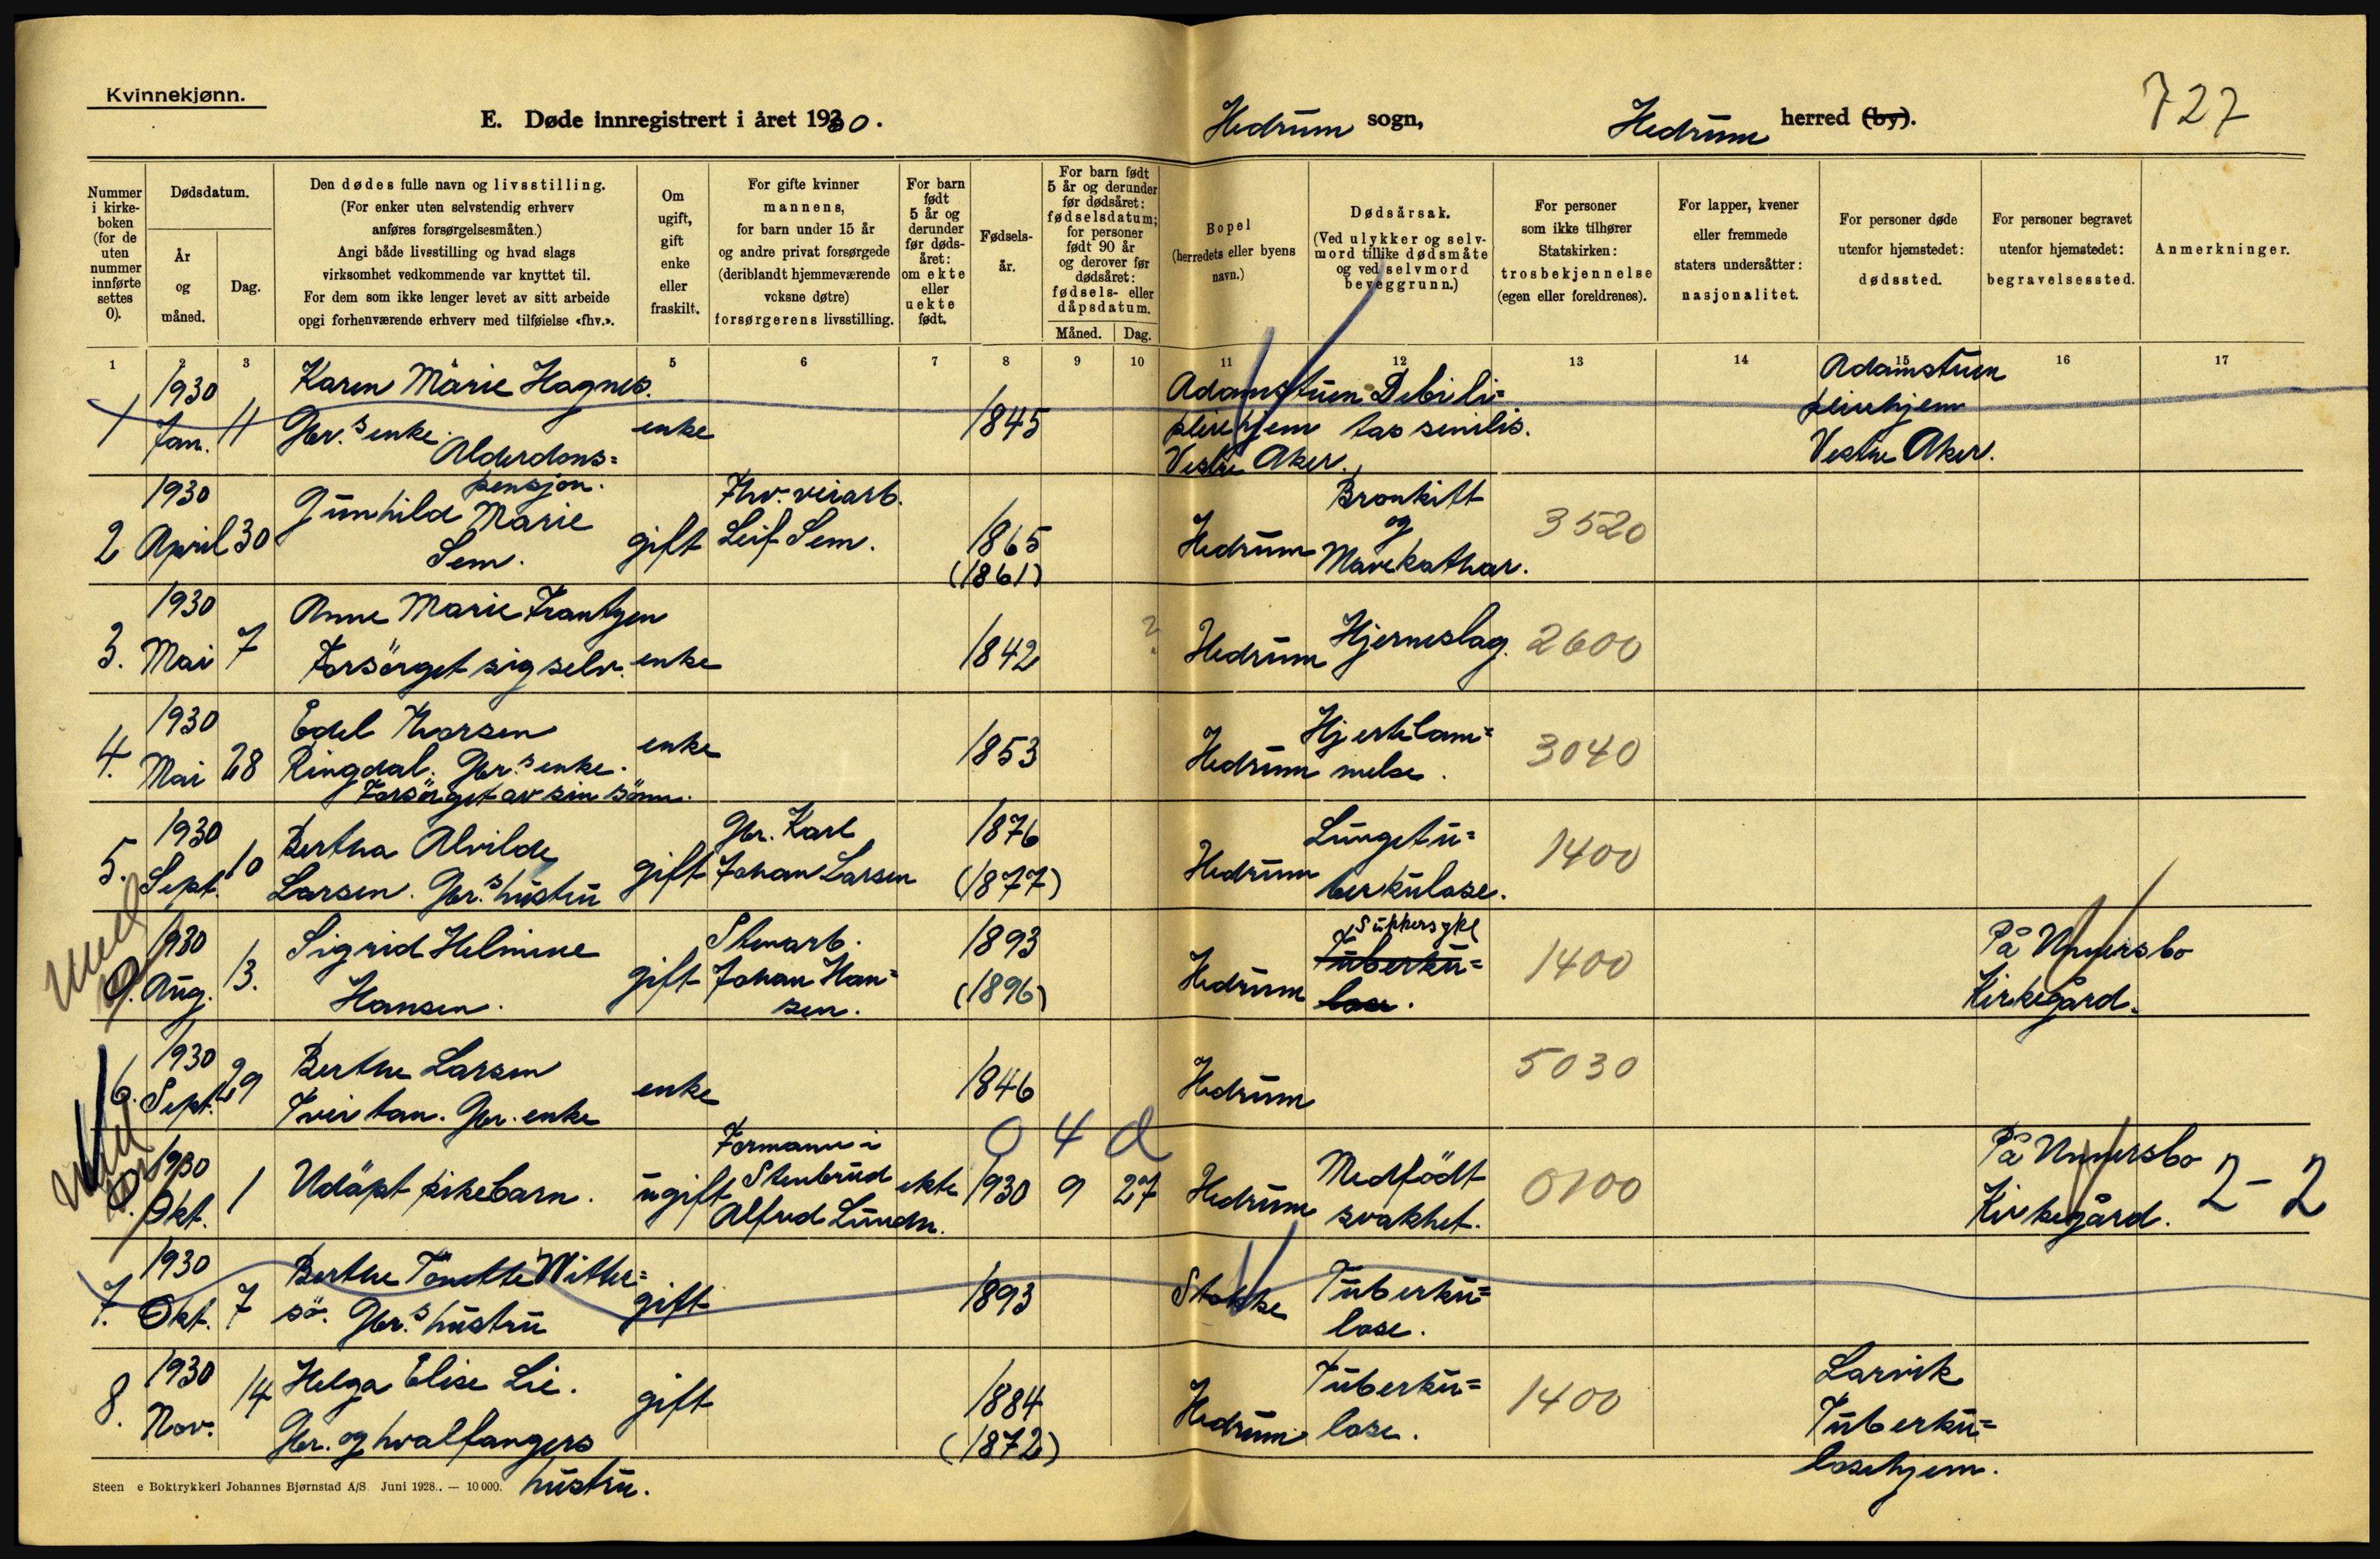 Kvinnekjønn.
E. Døde innregistrert i året 1930.
Hedrum sogn,
Hedrum herred (by).
727
Nummer i kirke-boken (for de uten nummer innførte settes 0).
Dødsdatum.
År og måned.
Dag.
Den dødes fulle navn og livsstilling.
(For enker uten selvstendig erhverv
anføres forsørgelsesmåten.)
Angi både livsstilling og hvad slags
virksomhet vedkommende var knyttet til.
For dem som ikke lenger levet av sitt arbeide
opgi forhenværende erhverv med tilføielse «fhv.».
Om ugift, gift enke eller fraskilt.
For gifte kvinner
mannens,
for barn under 15 år
og andre privat forsørgede
(deriblandt hjemmeværende
voksne døtre)
forsørgerens livsstilling.
For barn født 5 år og derunder før døds-året: om ekte eller uekte født.
Fødsels-år.
For barn født
5 år og derunder
før dødsåret:
fødselsdatum;
for personer
født 90 år
og derover før
dødsåret:
fødsels- eller
dåpsdatum.
Måned. Dag.
Bopel
(herredets eller byens
navn.)
Dødsårsak.
(Ved ulykker og selv-
mord tillike dødsmåte
og ved selvmord
beveggrunn.)
For personer
som ikke tilhører
Statskirken:
trosbekjennelse
(egen eller foreldrenes).
For lapper, kvener
eller fremmede
staters undersåtter:
nasjonalitet.
For personer døde
utenfor hjemstedet:
dødssted.
For personer begravet
utenfor hjemstedet:
begravelsessted.
Anmerkninger.
1 2 3 4 5 6 7 8 9 10 11 12 13 14 15 16 17
1930 Karen Marie Hagnes. Adamstuen Debili= Adamstuen
1 Jan. 11 Gbr.s enke. enke 1845 pleiehjem tas senilis. pleiehjem
Alderdoms= Vestre Aker. Vestre Aker.
pensjon.
1930 Gunhild Marie Fhv. veiarb. Bronkitt
2 April 30 Sem. gift Leif Sem. 1865 Hedrum og 3520
(1861) Mavekathar.
1930 Anne Marie Frantzen
3. Mai 7 Forsörget sig selv. enke 1842 ? Hedrum Hjerneslag. 2600
1930 Edel Thorsen Hjertelam=
4. Mai 28 Ringdal. Gbr.s enke. enke 1853 Hedrum melse. 3040
Forsörget av sin sönn.
1930 Bertha Alvilde Gbr. Karl 1876 Lungetu=
5. Sept. 10 Larsen. Gbr.s hustru gift Johan Larsen (1877) Hedrum berkulose. 1400
Sukkersyke
1930 Sigrid Helmine Stenarb. 1893 Tuberku= På Unnersbo
0. Aug. 13. Hansen. gift Johan Han=sen. (1896) Hedrum lose. 1400 Kirkegård.
1930 Berthe Larsen
6. Sept. 29 Tveitan. Gbr. enke enke 1846 Hedrum 5030
0 4 d
1930 Formann i Medfödt På Unnersbo
0. Okt. 1 Udöpt pikebarn. ugift Stenbrud ekte 1930 9 27 Hedrum svakhet. 0100 Kirkegård. 2-2
Alfred Lunde.
1930 Berthe Tonette Witter= Tuberku=
7. Okt. 7 sö. Gbr.s hustru gift 1893 Stokke lose.
1930 Helga Elise Lie. Tuberku= Larvik
8. Nov. 14 Gbr. og hvalfangers gift 1884 Hedrum lose. 1400 Tuberku=
hustru. (1872) losehjem.
Steen e Boktrykkeri Johannes Bjørnstad A/S Juni 1928.. — 10 000.